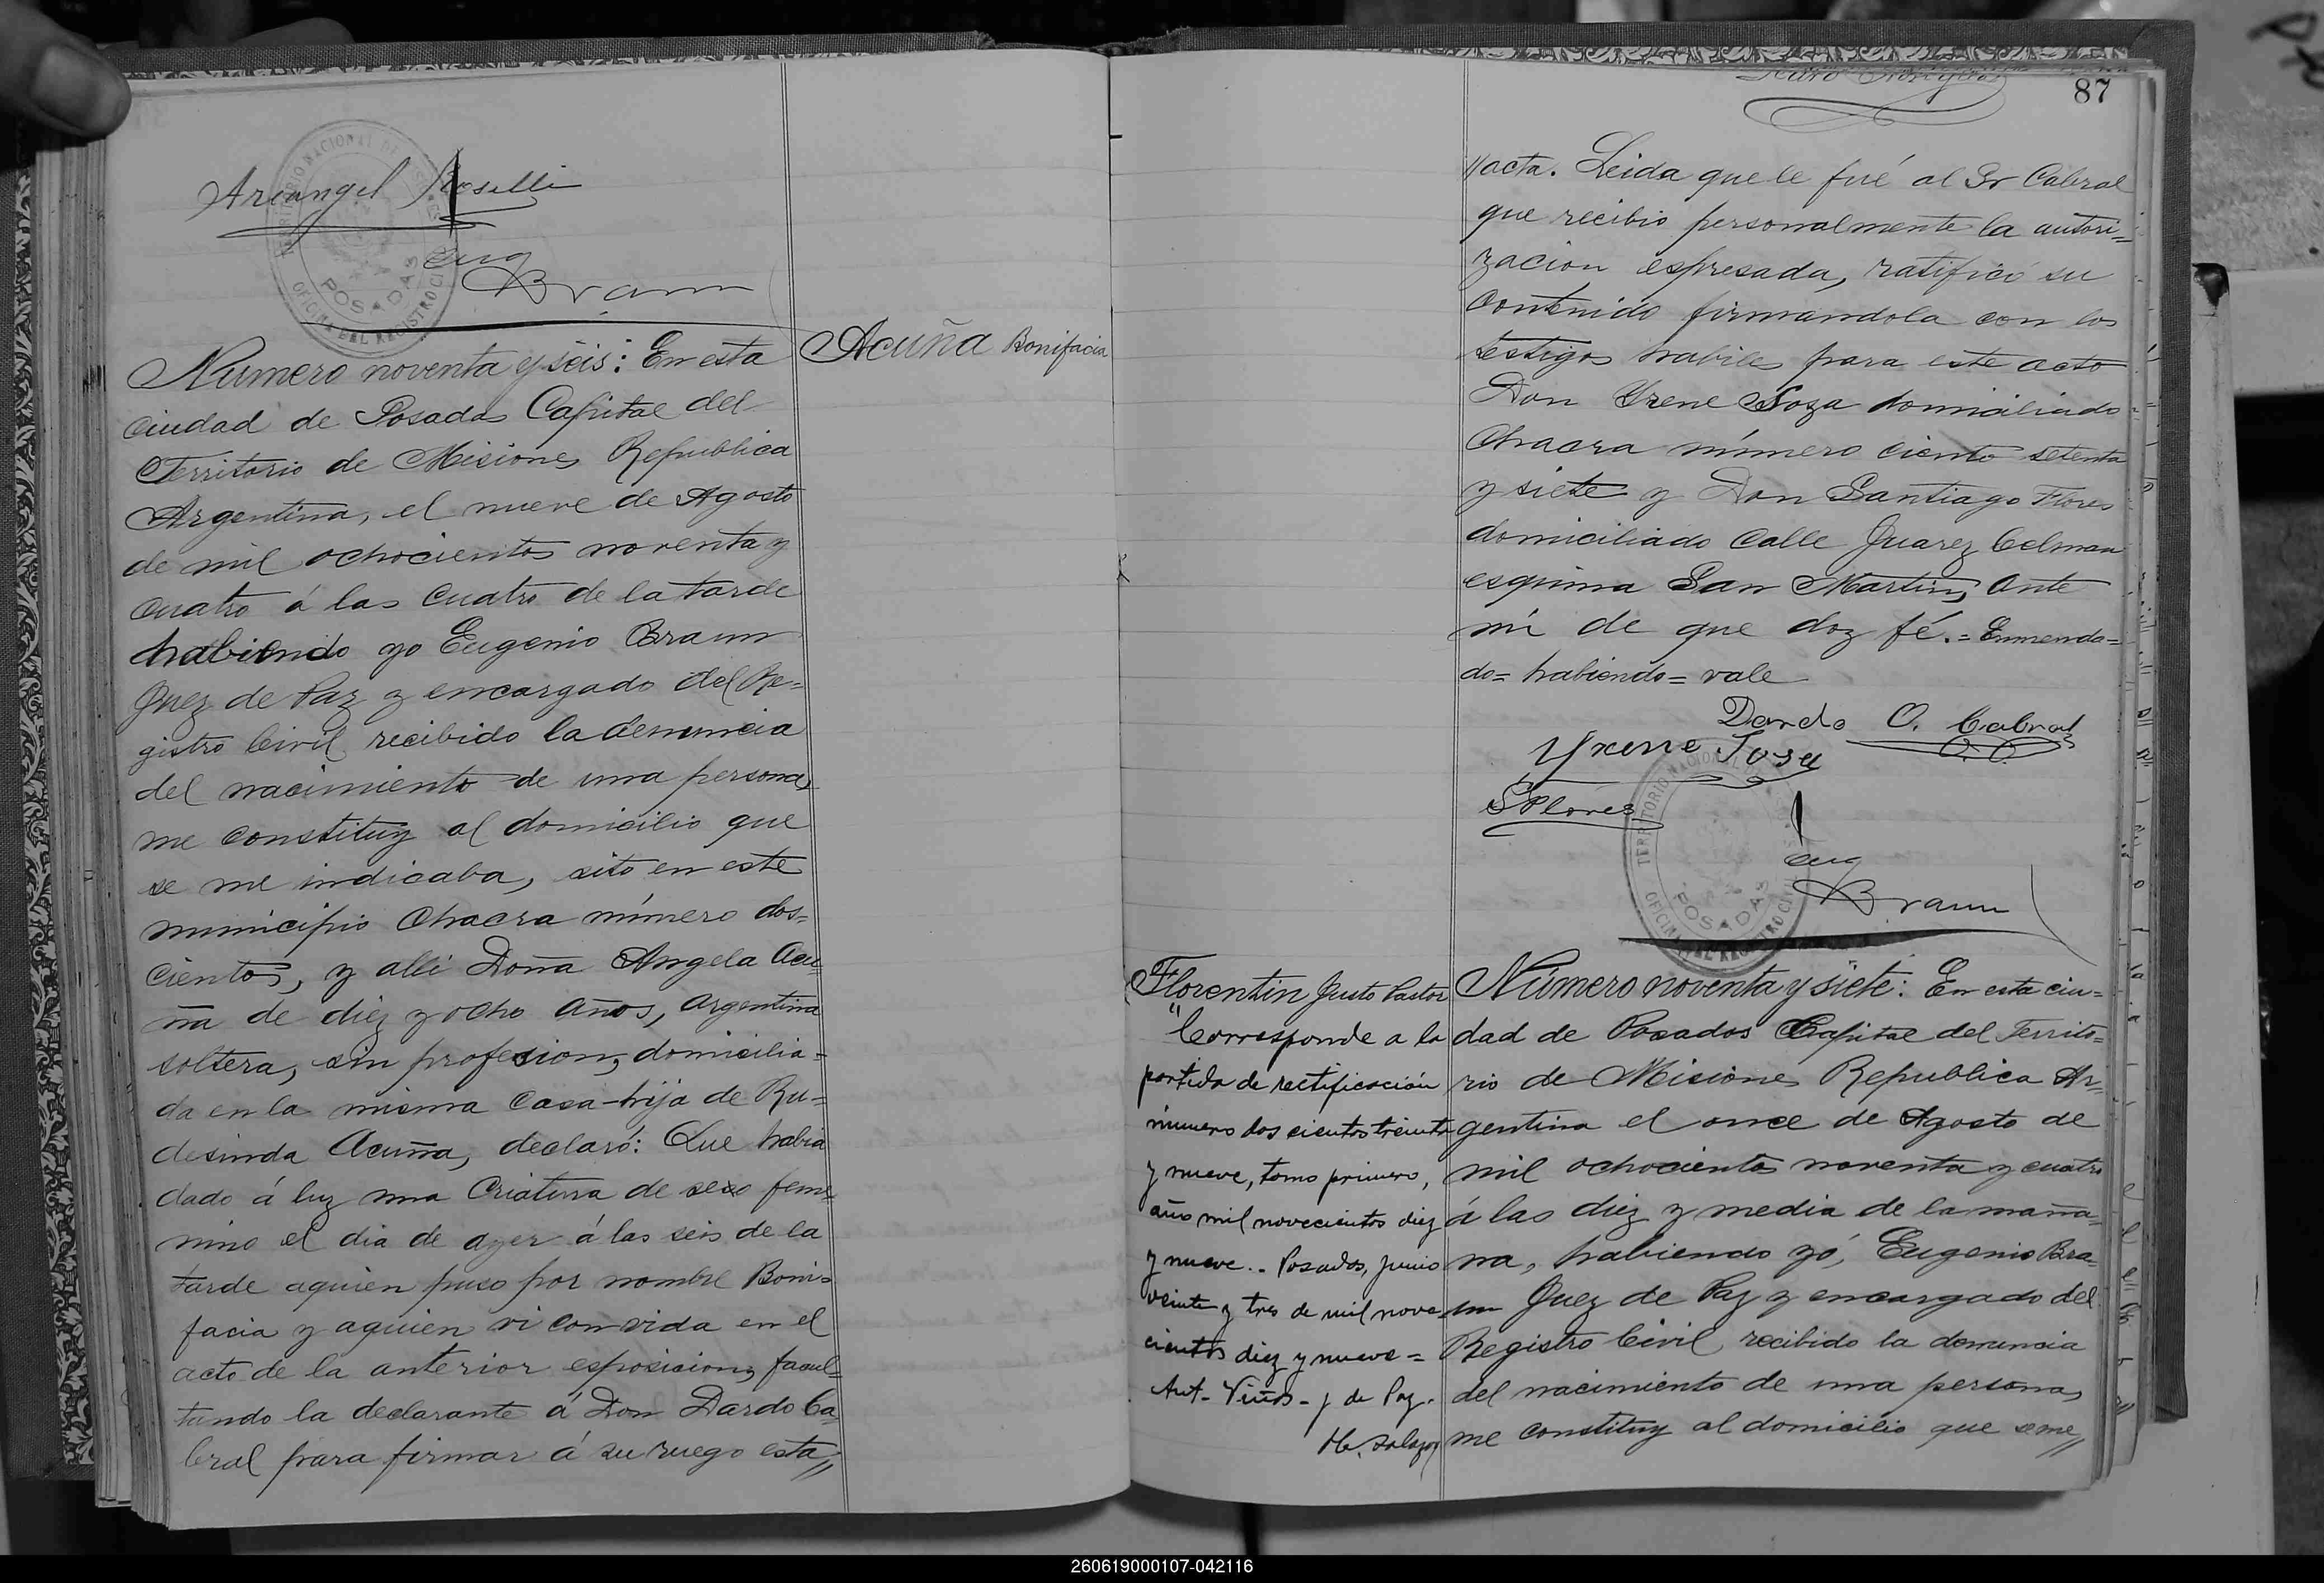 Arcangel Roselli
Eug
Braun
TERRITORIO NACIONAL DE MISIONES
POSADAS
OFICINA DEL REGISTRO CIVIL
Acuña Bonifacia
Número noventa y seis: En esta
ciudad de Posadas Capital del
Territorio de Misiones Republica
Argentina, el nueve de Agosto
de mil ochocientos noventa y
cuatro á las cuatro de la tarde
habiendo yo Eugenio Braun
Juez de Paz y encargado del Re=
gistro Civil recibido la denuncia
del nacimiento de una persona,
me constituy al domicilio que
se me indicaba, sito en este
municipio Chacra número dos=
cientos, y alli Doña Angela Acu-
ña de diez y ocho años, argentina
soltera, sin profesion, domicilia=
da en la misma casa-hija de Ru=
desinda Acuña, declaró: Que habia
dado á luz una criatura de sexo feme-
nino el dia de ayer á las seis de la
tarde aquien puso por nombre Boni=
facia y aquien vi con vida en el
acto de la anterior esposicion, facul=
tando la declarante á Don Dardo Ca=
bral para firmar á su ruego esta //
87
//acta. Leida que le fué al Sr Cabral
que recibio personalmente la autori=
zacion espresada, ratificó su
contenido firmandola con los
testigos habiles para este acto
Don Yrene Soza domiciliado
Chacra número ciento setenta
y siete y Don Santiago Flores
domiciliado Calle Juarez Celman
esquina San Martin, ante
mi de que doy fé.= Enmenda=
do= habiendo= vale
Dardo O. Cabral
Yrene Sosa
S Flores
Eug
Braun
TERRITORIO NACIONAL
POSADAS
OFICINA DEL REGISTRO CIVIL
Florentin Justo Pastor
"Corresponde a la
partida de rectificación
número dos cientos treinta
y nueve, tomo primero,
año mil novecientos diez
y nueve.- Posadas, junio
veinte y tres de mil nove-
cientos diez y nueve=
Ant- Viñas- J. de Paz.
Número noventa y siete: En esta ciu=
dad de Posadas Capital del Territo=
rio de Misiones Republica Ar=
gentina el once de Agosto de
mil ochocientos noventa y cuatro
á las diez y media de la maña=
na, habiendo yó, Eugenio Bra=
un Juez de Paz y encargado del
Registro Civil recibido la denuncia
del nacimiento de una persona,
me constituy al domicilio que se me //
260619000107-042116